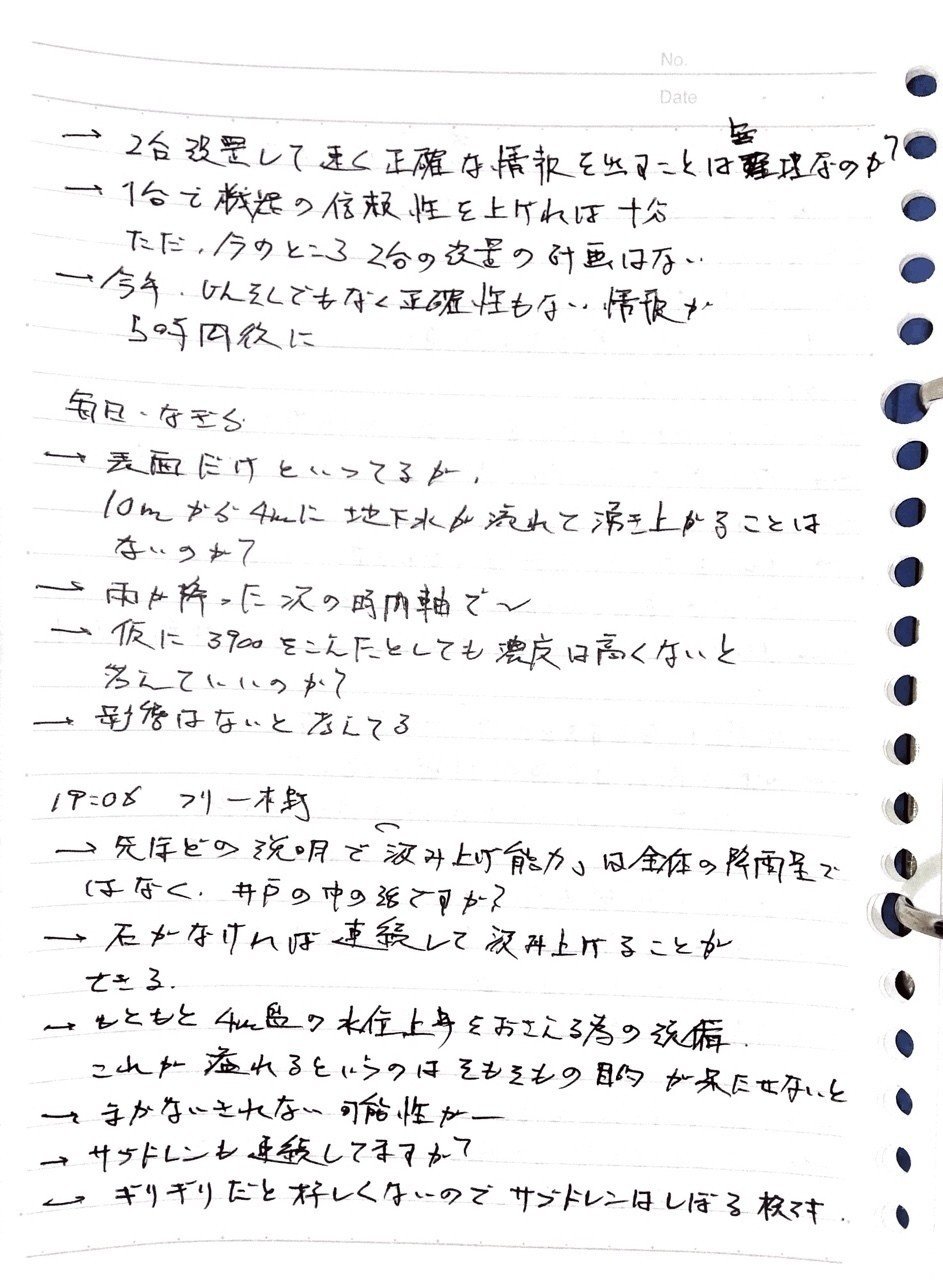 No.
Date
→ 2台設置して速く正確な情報を出すことは無理なのか?
→ 1台で機器の信頼性を上げれば十分
ただ、今のところ2台の設置の計画はない
→ 今年、じんそくでもなく正確性もない情報が
5時間後に
毎日・なぎら
→ 表面だけといってるが、
10mから4mに地下水が流れて湧き上がることは
ないのか?
→ 雨が降った次の時間軸で〜
→ 仮に3900をこえたとしても濃度は高くないと
考えていいのか?
→ 影響はないと考えてる
19:08 フリー木野
→ 先ほどの説明で「汲み上げ能力」は全体の降雨量で
はなく、井戸の中の話ですか?
→ 石がなければ連続して汲み上げることが
できる.
→ もともと4m盤の水位上昇をおさえる為の設備.
これが溢れるというのはそもそもの目的が果たせないと
→ まかないきれない可能性がー
→ サブドレンも連続してますか?
→ ギリギリだと好しくないのでサブドレンはしぼる